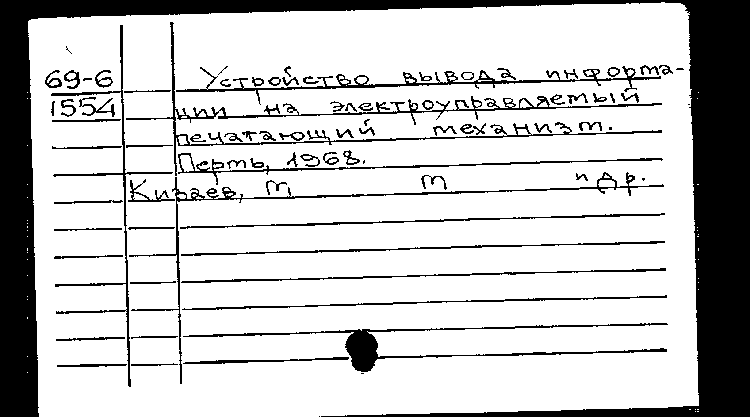 69-6 Устройство вывода информа-
1554 ции на электроуправляемый
печатающий механизм.
Пермь, 1968.
Кизаев, М М и др.